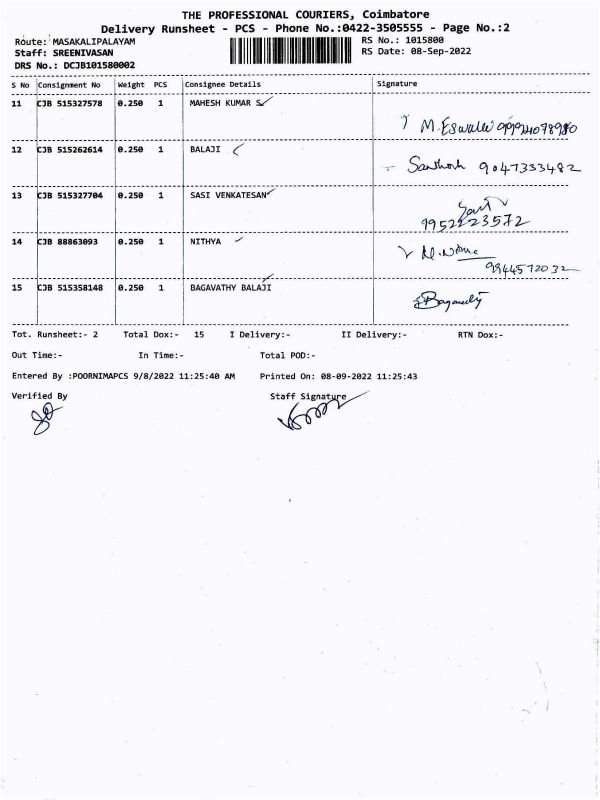 THE PROFESSIONAL COURIERS, Coimbatore
Delivery Runsheet - PCS - Phone No.:0422-3505555 - Page No.:2
Route: MASAKALIPALAYAM RS No.: 1015800
Staff: SREENIVASAN RS Date: 08-Sep-2022
DRS No.: DCJB101580002
S No Consignment No Weight PCS Consignee Details Signature
11 CJB 515327578 0.250 1 MAHESH KUMAR S
12 CJB 515262614 0.250 1 BALAJI
Santhosh 9047333482
13 CJB 515327704 0.250 1 SASI VENKATESAN
9952223572
14 CJB 88863093 0.250 1 NITHYA
9944572032
15 CJB 515358148 0.250 1 BAGAVATHY BALAJI
Tot. Runsheet:- 2 Total Dox:- 15 I Delivery:- II Delivery:- RTN Dox:-
Out Time:- In Time:- Total POD:-
Entered By :POORNIMAPCS 9/8/2022 11:25:40 AM Printed On: 08-09-2022 11:25:43
Verified By Staff Signature